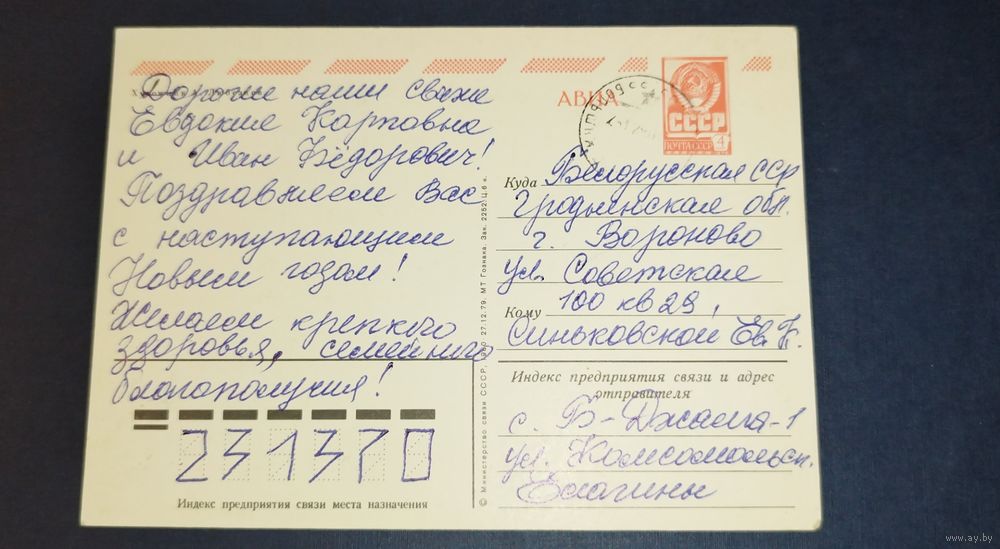 Дорогие наши сваты
Евдокия Карповна
и Иван Фёдорович!
Поздравляем Вас
с наступающим
Новым годом!
Желаем крепкого
здоровья, семейного
благополучия!
231370
Индекс предприятия связи места назначения
© Министерство связи СССР, 27.12.79. МТ Гознака. Зак. 2252. Ц. 6 к.
АВИА
СССР
ПОЧТА СССР 4
Куда Белорусская ССР
Гродненская обл.
г. Вороново
ул. Советская
100 кв 29,
Кому
Синьковской Ев. К.
Индекс предприятия связи и адрес
отправителя
с. Б-Джалга-1
ул. Комсомольск.
Елагины
www.ay.by